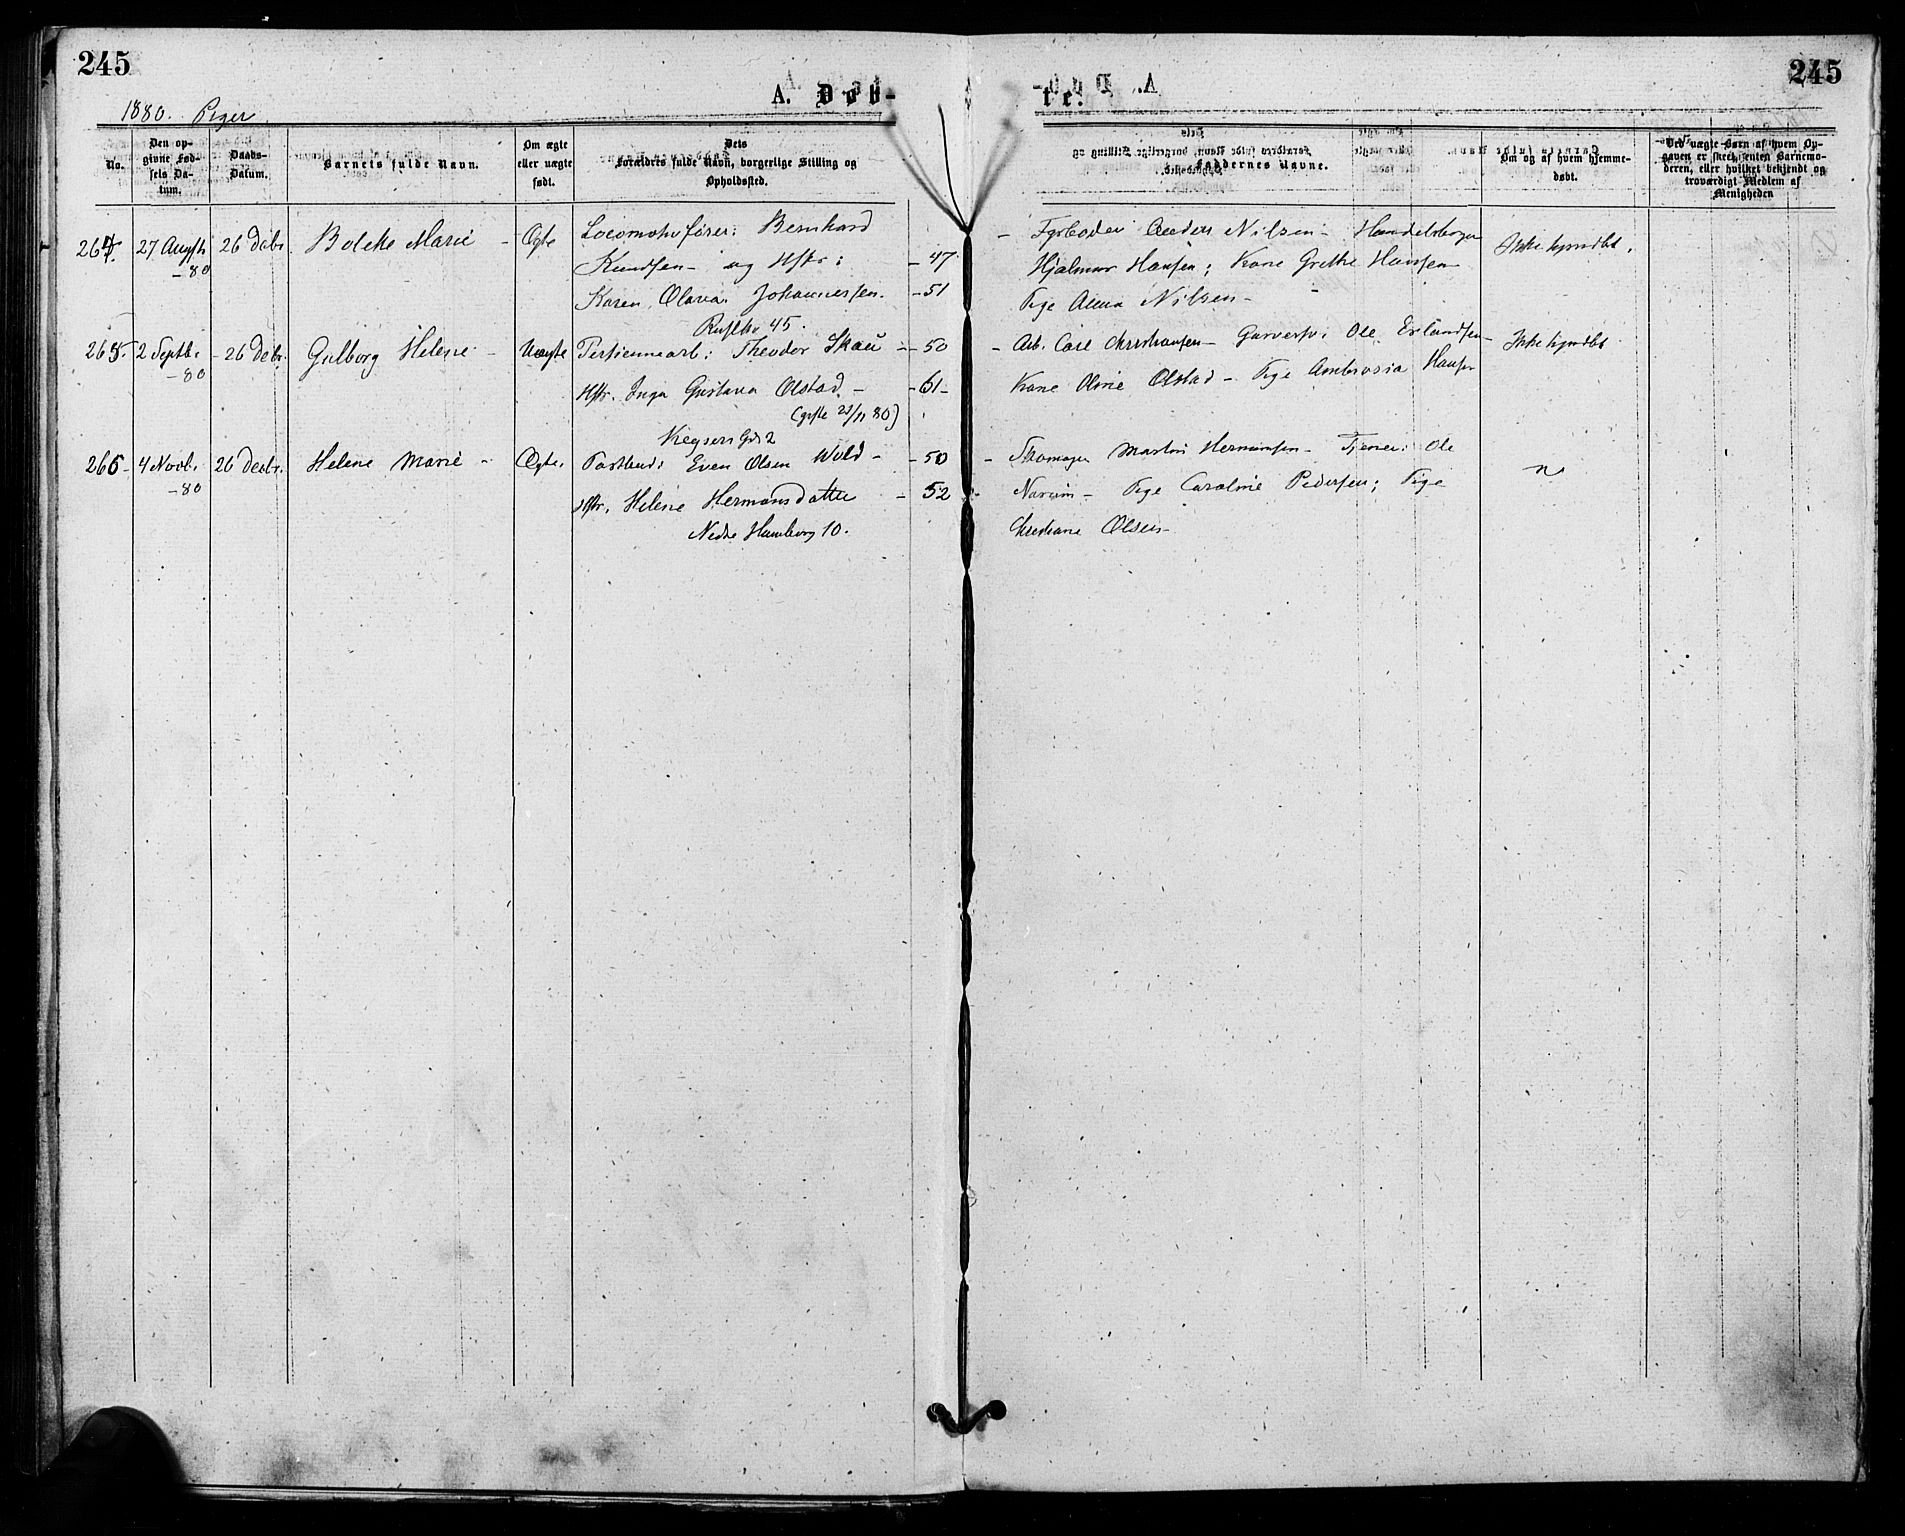 245
245
1880. Piger
A. Døb-
te.
No.
Den op-
givne Fød-
sels Da-
tum.
Daabs-
Datum.
Barnets fulde Navn.
Om ægte
eller uægte
født.
Dets
Forældres fulde Navn, borgerlige Stilling og
Opholdssted.
Faddernes Navne.
Om og af hvem hjemme-
døbt.
Ved uægte Børn af hvem Op-
gaven er skeet, enten Barnemo-
deren, eller hvilket bekjendt og
troværdigt Medlem af
Menigheden
264. 27 Augst 26 Debr. Bolette Marie - Ægte Locomotivfører: Bernhard
-80 Knudsen - og Hstr: - 47
Karen Olava Johannessen. - 51
45.
- Fyrbøder Anders Nilsen - Handelsborger
Hjalmar Hansen; Kone Grethe Hansen
Pige Anna Nilsen -
Ikke hjmdbt.
265. 2 Septbr. - 26 Debr. Gulborg Helene - Uægte Theodor Skau - 50
-80 Hstr. Inga Gustava Olstad - - 61 -
(gifte 21/11 80)
Keysers Gd 2
- Arb. Carl Christiansen - Garversv: Ole Erlandsen -
Kone Oline Olstad - Pige Ambrosia Hansen
Ikke hjmdbt
266 - 4 Novbr. 26 Decbr. Helene Marie - Ægte. Postbud: Even Olsen Wold - - 50
-80 Hstr. Helene Hermansdatter - 52
Nedre Hamborg 10.
- Skomager Martin Hermansen - Tjener: Ole
Narum - Pige Caroline Pedersen; Pige
Christiane Olsen -
n